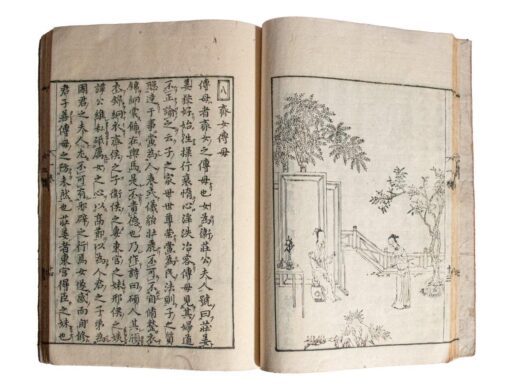 八 齊女傅母
傅母者齊女之傅母也女為衛莊公夫人號曰莊姜
姜姣好始往操行衰惰心淫泆冶容傅母見其婦道
不正諭之云子之家世世尊榮當為民法則子之質
聰達于事當為人表式儀貌壯麗不可不自脩整衣
錦絅裳飾在輿馬是不貴德也乃作詩曰碩人其頎
衣錦絅衣齊侯之子衛侯之妻東宮之妹邢侯之姨
譚公維私砥厲女之心以高節以為人君之子弟為
國君之夫人尤不可有邪僻之行焉女遂感而自脩
君子善傅母之防未然也莊姜者東宮得臣之妹也